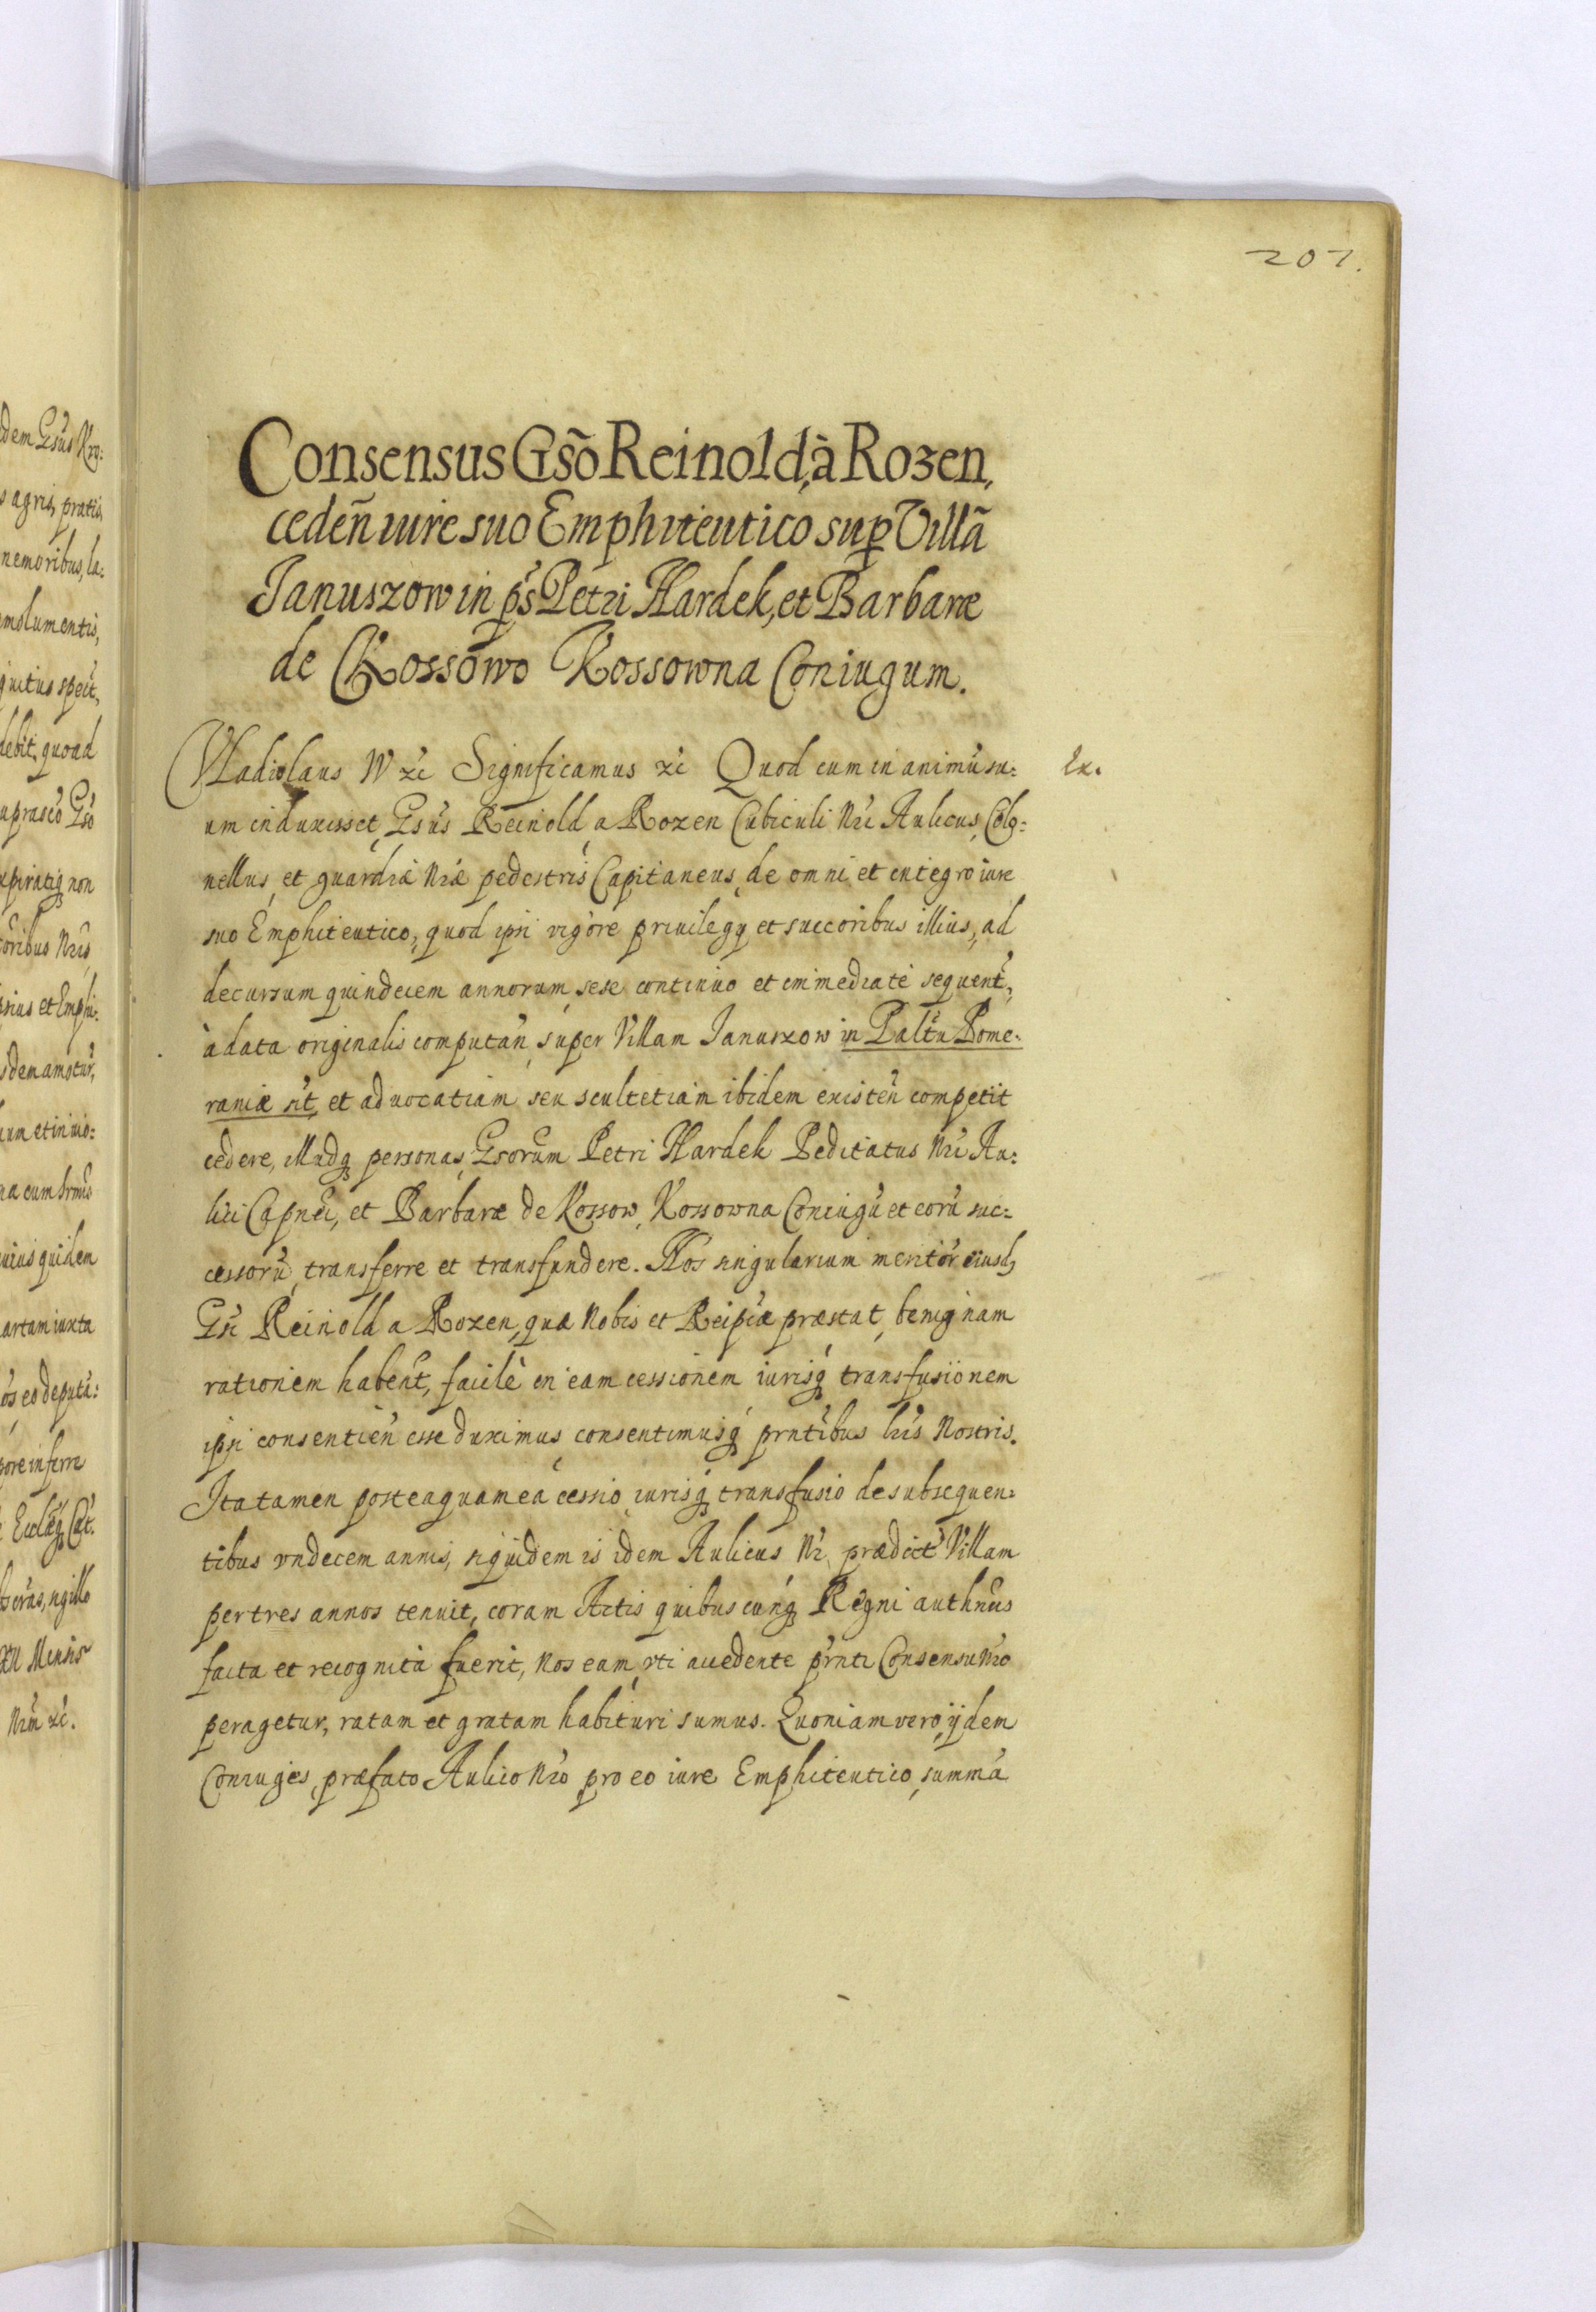 207.
Consensus Gsō Reinold, à Rozen,
cedeñ iure suo Emphiteutico sup Villã
Januszow in ps Petri Hardek, et Barbaræ
de Kossowo Kossowna Coniugum.
Vladislaus IV zc Significamus zc Quod cum in animū su=
Ex.
um induxisset Gsus Reinold a Rozen Cubiculi Nri Aulicus, Colo=
nellus, et guardiæ Nræ pedestris Capitaneus, de omni et integro iure
suo Emphiteutico, quod ipsi vigore priuilegij et succoribus illius, ad
decursum quindecem annorum, sese continuo et immediatè sequent,
à data originalis computan, super Villam Januszow in Paltu Pome-
raniæ sit, et aduocatiam seu scultetiam ibidem existen competit
cedere, illudq personas Gsorum Petri Hardek Peditatus Nri Au=
lici Capnei, et Barbaræ de Kossow, Kossowna Coniugū et eorū suc=
cessorū, transferre et transfundere. Nos singularium meritor eiusd
Gsi Reinold a Rozen, quæ Nobis et Reipcæ præstat, benignam
rationem habent, facilè in eam cessionem iurisq transfusionem
ipsi consentien esse duximus, consentimusq prntibus lris Nostris.
Ita tamen posteaquam ea cessio iurisq transfusio de subsequen=
tibus vndecem annis, siquidem is idem Aulicus Nr, prædict Villam
per tres annos tenuit, coram Actis quibuscunq Regni authncis
facta et recognita fuerit, Nos eam, vti accedente prnti Consensu Nro
peragetur, ratam et gratam habituri sumus. Quoniam vero ijdem
Coniuges, præfato Aulico Nro pro eo iure Emphiteutico, summá